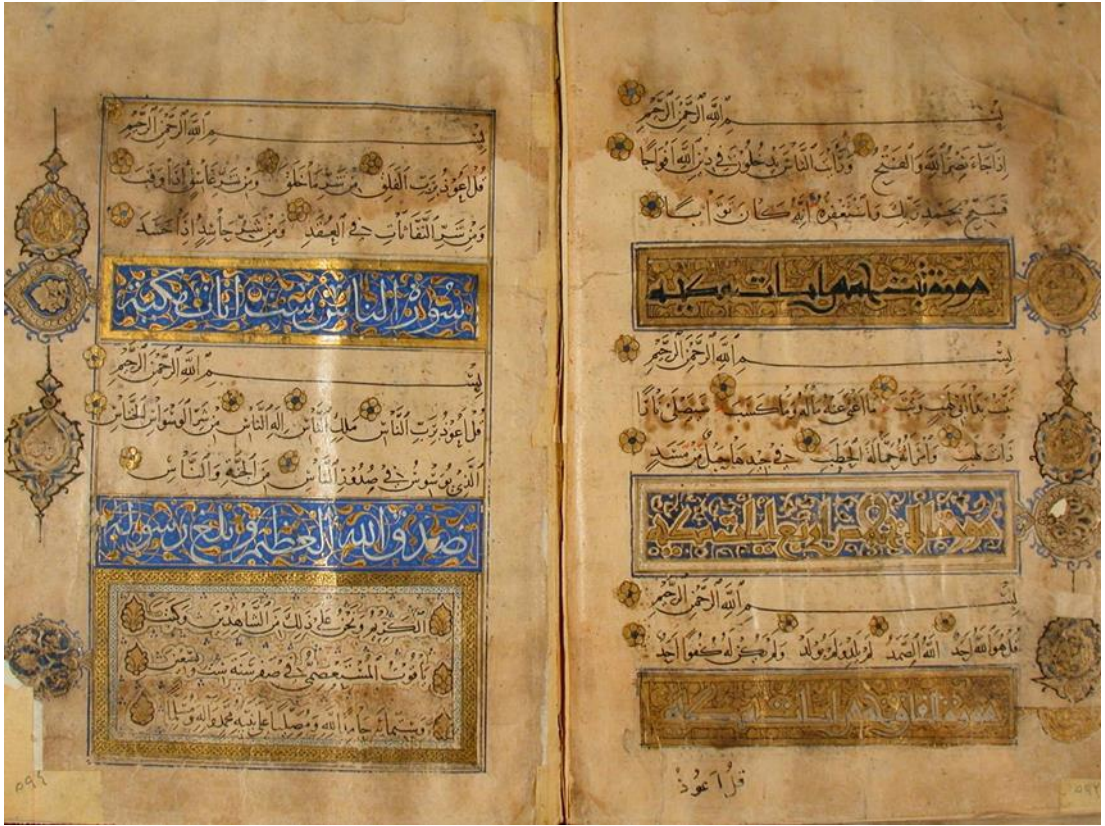 بِسْمِ ٱللَّهِ ٱلرَّحْمَٰنِ ٱلرَّحِيمِ
إذا جاء نصر الله والفتح ورأيت الناس يدخلون في دين الله أفواجا
فسبح بحمد ربك واستغفره إنه كان توابا
سورة تبت خمس ايات مكية
بِسْمِ ٱللَّهِ ٱلرَّحْمَٰنِ ٱلرَّحِيمِ
تبت يدا أبي لهب وتب ما أغنى عنه ماله وما كسب سيصلى نارا
ذات لهب وامرأته حمالة الحطب في جيدها حبل من مسد
سورة الاخلاص اربع ايات مكية
بِسْمِ ٱللَّهِ ٱلرَّحْمَٰنِ ٱلرَّحِيمِ
قل هو الله أحد الله الصمد لم يلد ولم يولد ولم يكن له كفوا أحد
سورة الفلق خمس ايات مكية
قل أعوذ
بِسْمِ ٱللَّهِ ٱلرَّحْمَٰنِ ٱلرَّحِيمِ
قل أعوذ برب الفلق من شر ما خلق ومن شر غاسق إذا وقب
ومن شر النفاثات في العقد ومن شر حاسد إذا حسد
سورة الناس ست ايات مكية
بِسْمِ ٱللَّهِ ٱلرَّحْمَٰنِ ٱلرَّحِيمِ
قل أعوذ برب الناس ملك الناس إله الناس من شر الوسواس الخناس
الذي يوسوس في صدور الناس من الجنة والناس
صدق الله العظيم وبلغ رسوله
الكريم ونحن على ذلك من الشاهدين وكتب
ياقوت المستعصمي في صفر سنة ست وتسعين
وستمائة حامدا لله ومصليا على نبيه محمد وآله ومسلما